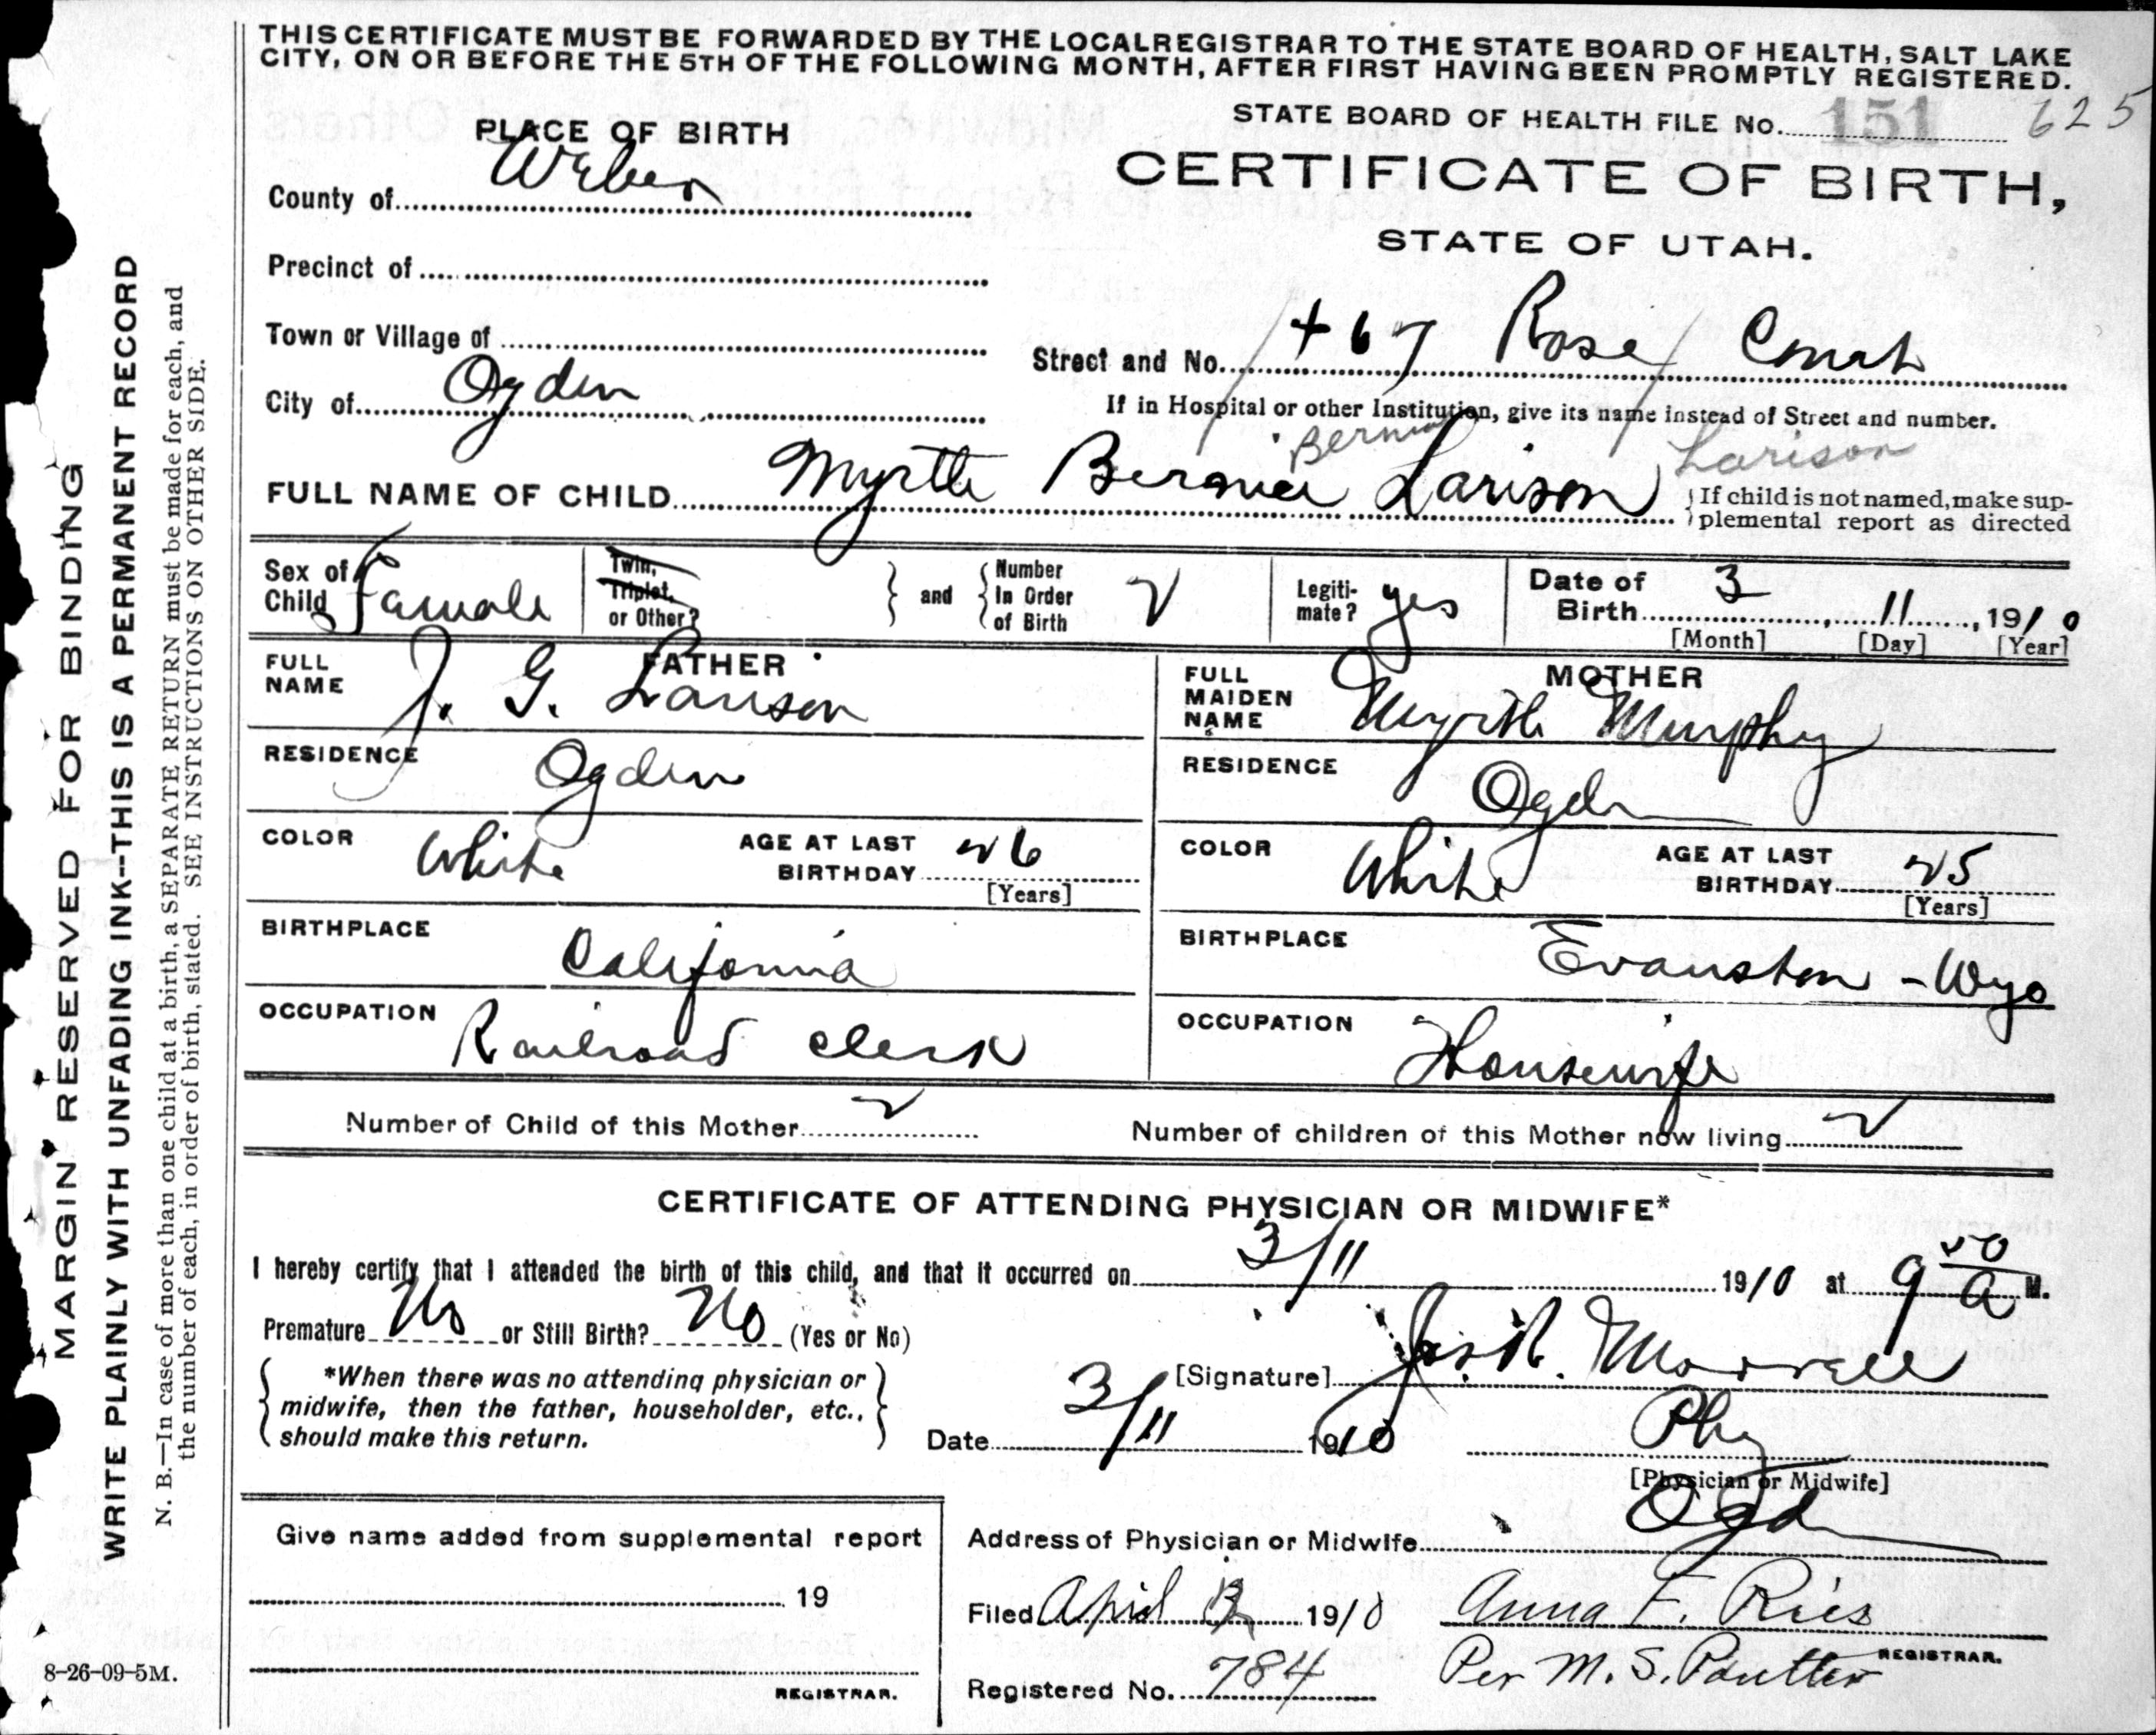 THIS CERTIFICATE MUST BE FORWARDED BY THE LOCAL REGISTRAR TO THE STATE BOARD OF HEALTH, SALT LAKE
CITY, ON OR BEFORE THE 5TH OF THE FOLLOWING MONTH, AFTER FIRST HAVING BEEN PROMPTLY REGISTERED.
STATE BOARD OF HEALTH FILE No. 151 625
PLACE OF BIRTH
CERTIFICATE OF BIRTH,
STATE OF UTAH.
County of Weber
Precinct of
Town or Village of
Street and No. 467 Rose Court
City of Ogden
If in Hospital or other Institution, give its name instead of Street and number.
Larison
FULL NAME OF CHILD Myrtle Bernice Larison
If child is not named, make sup-
plemental report as directed
Sex of Child Female
Twin, Triplet, or Other?
and
Number In Order of Birth 2
Legiti-mate? yes
Date of Birth 3, 11, 1910
[Month] [Day] [Year]
FATHER
FULL NAME J. G. Larison
RESIDENCE Ogden
COLOR White
AGE AT LAST BIRTHDAY 26
[Years]
BIRTHPLACE California
OCCUPATION Railroad Clerk
MOTHER
FULL MAIDEN NAME Myrtle Murphy
RESIDENCE Ogden
COLOR White
AGE AT LAST BIRTHDAY 25
[Years]
BIRTHPLACE Evanston - Wyo
OCCUPATION Housewife
Number of Child of this Mother 2
Number of children of this Mother now living 2
CERTIFICATE OF ATTENDING PHYSICIAN OR MIDWIFE*
I hereby certify that I attended the birth of this child, and that it occurred on 3/11 1910 at 9 50 A M.
Premature No or Still Birth? No (Yes or No)
*When there was no attending physician or
midwife, then the father, householder, etc.,
should make this return.
[Signature] Jos. R. Morrell
Date 3/11 1910
Phy
[Physician or Midwife]
Address of Physician or Midwife Ogd
Give name added from supplemental report
19
REGISTRAR.
Filed April 1910
Anna F. Ries
REGISTRAR.
Per M. S.
Registered No. 784
8-26-09-5M.
MARGIN RESERVED FOR BINDING
WRITE PLAINLY WITH UNFADING INK--THIS IS A PERMANENT RECORD
N. B.—In case of more than one child at a birth, a SEPARATE RETURN must be made for each, and
the number of each, in order of birth, stated. SEE INSTRUCTIONS ON OTHER SIDE.